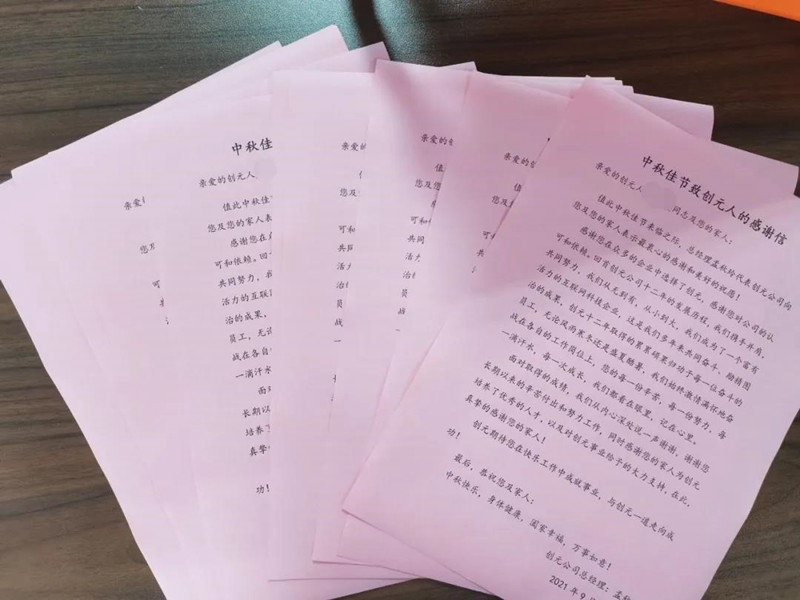 中秋佳节致创元人的感谢信
亲爱的创元人
同志及您的家人：
值此中秋佳节来临之际，总经理孟秋玲代表创元公司向
您及您的家人表示最衷心的感谢和美好的祝您！
感谢您在众多的企业中选择了创元，感谢您对公司的认
可和依赖。回首创元公司十二年的发展历程，我们携手并肩，
共同努力，我们从无到有，从小到大，我们成为了一个富有
活力的互联网科技企业，这是我们多年来共同奋斗，励精图
治的成果，创元十二年取得的累累硕果归功于每一位奋斗的
员工，无论风雨寒冬还是盛夏酷暑，我们始终激情满怀地奋
战在各自的工作岗位上，您的每一份辛苦，每一份努力，每
一滴汗水，每一次成长，我们都看在眼里，记在心里。
面对取得的成绩，我们从内心深处说一声谢谢，谢谢您
长期以来的辛苦付出和努力工作，同时感谢您的家人为创元
培养了优秀的人才，以及对创元事业给予的大力支持，在此，
真挚的感谢您的家人！
创元期待您在快乐工作中成就事业，与创元一道走向成
功！
最后，恭祝您及家人：
中秋快乐，身体健康，阖家幸福，万事如意！
创元公司总经理：孟秋
2021年9
中秋佳
亲爱的创元人
值此中秋佳节
您及您的家人表
感谢您在众
可和依赖。回
共同努力，我
活力的互联
治的成果，
员工，无论
战在各自
一滴汗水
面对
长期以
培养了
真挚
功！